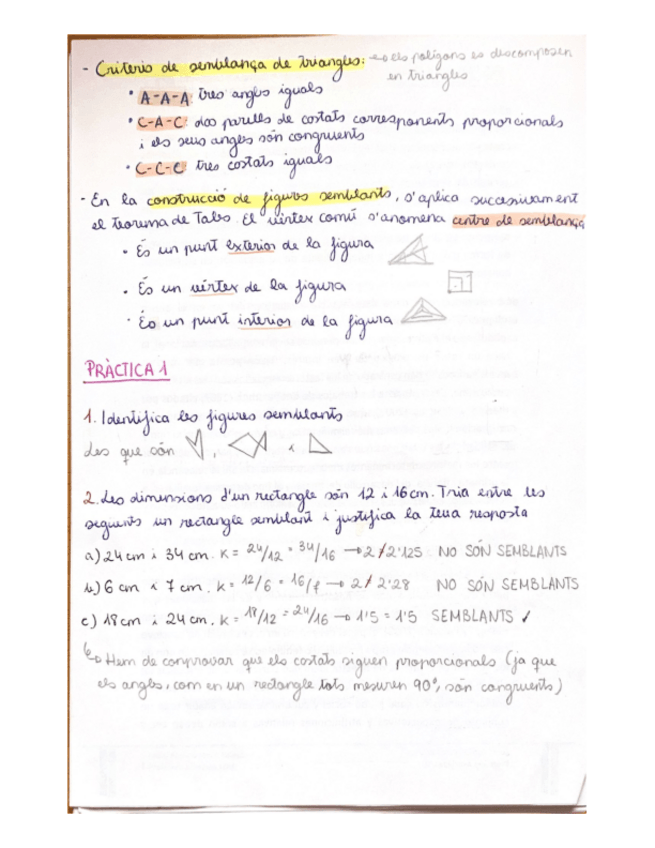 - Criteris de semblança de triangles: → els polígons es descomposen
en triangles
· A-A-A: tres angles iguals
· C-A-C: dos parells de costats corresponents proporcionals
i els seus angles són congruents
· C-C-C: tres costats iguals
- En la construcció de figures semblants, s'aplica successivament
el teorema de Tales. El vèrtex comú s'anomena centre de semblança
· És un punt exterior de la figura
· És un vèrtex de la figura
· És un punt interior de la figura
PRÀCTICA 1
1. Identifica les figures semblants
Les que són , i
2. Les dimensions d'un rectangle són 12 i 16 cm. Tria entre les
seguents un rectangle semblant i justifica la teua resposta
a) 24 cm i 34 cm. K = 24/12 = 34/16 → 2 ≠ 2'125 NO SÓN SEMBLANTS
b) 6 cm i 7 cm. K = 12/6 = 16/7 → 2 ≠ 2'28 NO SÓN SEMBLANTS
c) 18 cm i 24 cm. K = 18/12 = 24/16 → 1'5 = 1'5 SEMBLANTS ✓
↳ Hem de comprovar que els costats siguen proporcionals (ja que
els angles, com en un rectangle tots mesuren 90º, són congruents)